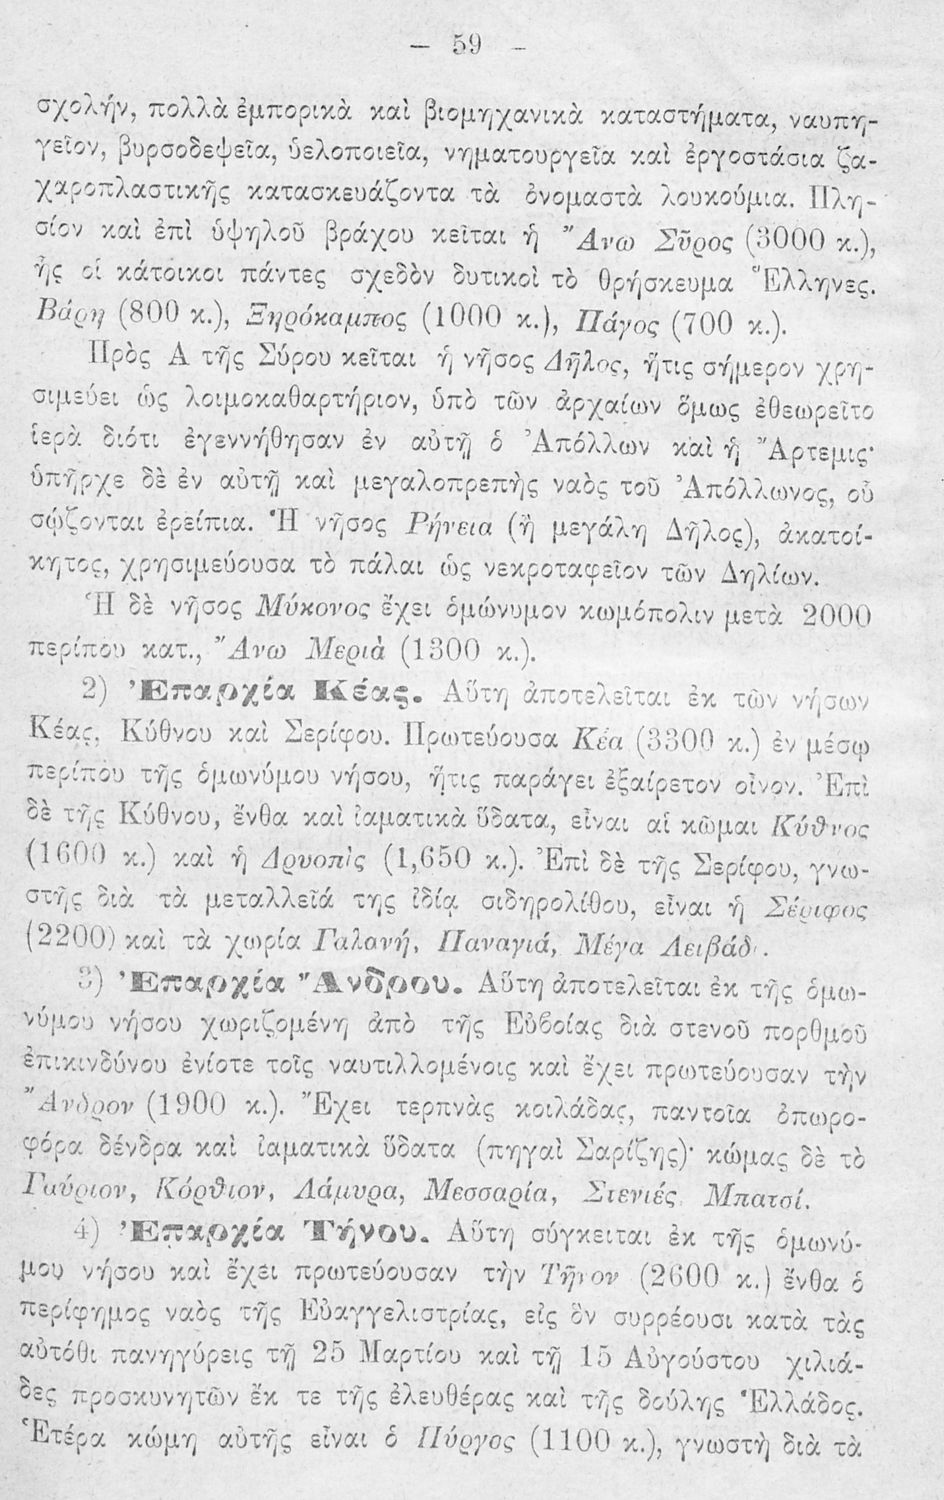 — 59 —
σχολήν, πολλὰ ἐμπορικὰ καὶ βιομηχανικὰ καταστήματα, ναυπη-
γεῖον, βυρσοδεψεῖα, ὑελοποιεῖα, νηματουργεῖα καὶ ἐργοστάσια ζα-
χαροπλαστικῆς κατασκευάζοντα τὰ ὀνομαστὰ λουκούμια. Πλη-
σίον καὶ ἐπὶ ὑψηλοῦ βράχου κεῖται ἡ Ἄνω Σῦρος (3000 κ.),
ἧς οἱ κάτοικοι πάντες σχεδὸν δυτικοὶ τὸ θρήσκευμα Ἕλληνες.
Βάρη (800 κ.), Ξηρόκαμπος (1000 κ.), Πάγος (700 κ.).
Πρὸς Α τῆς Σύρου κεῖται ἡ νῆσος Δῆλος, ἥτις σήμερον χρη-
σιμεύει ὡς λοιμοκαθαρτήριον, ὑπὸ τῶν ἀρχαίων ὅμως ἐθεωρεῖτο
ἱερὰ διότι ἐγεννήθησαν ἐν αὐτῇ ὁ Ἀπόλλων καὶ ἡ Ἄρτεμις·
ὑπῆρχε δὲ ἐν αὐτῇ καὶ μεγαλοπρεπὴς ναὸς τοῦ Ἀπόλλωνος, οὗ
σῴζονται ἐρείπια. Ἡ νῆσος Ρήνεια (ἢ μεγάλη Δῆλος), ἀκατοί-
κητος, χρησιμεύουσα τὸ πάλαι ὡς νεκροταφεῖον τῶν Δηλίων.
Ἡ δὲ νῆσος Μύκονος ἔχει ὁμώνυμον κωμόπολιν μετὰ 2000
περίπου κατ., Ἄνω Μεριὰ (1300 κ.).
2) Ἐπαρχία Κέας. Αὕτη ἀποτελεῖται ἐκ τῶν νήσων
Κέας, Κύθνου καὶ Σερίφου. Πρωτεύουσα Κέα (3300 κ.) ἐν μέσῳ
περίπου τῆς ὁμωνύμου νήσου, ἥτις παράγει ἐξαίρετον οἶνον. Ἐπὶ
δὲ τῆς Κύθνου, ἔνθα καὶ ἰαματικὰ ὕδατα, εἶναι αἱ κῶμαι Κύθνος
(1600 κ.) καὶ ἡ Δρυοπὶς (1,650 κ.). Ἐπὶ δὲ τῆς Σερίφου, γνω-
στῆς διὰ τὰ μεταλλεῖά της ἰδίᾳ σιδηρολίθου, εἶναι ἡ Σέριφος
(2200) καὶ τὰ χωρία Γαλανή, Παναγιά, Μέγα Λειβάδι.
3) Ἐπαρχία Ἄνδρου. Αὕτη ἀποτελεῖται ἐκ τῆς ὁμω-
νύμου νήσου χωριζομένη ἀπὸ τῆς Εὐβοίας διὰ στενοῦ πορθμοῦ
ἐπικινδύνου ἐνίοτε τοῖς ναυτιλλομένοις καὶ ἔχει πρωτεύουσαν τὴν
Ἄνδρον (1900 κ.). Ἔχει τερπνὰς κοιλάδας, παντοῖα ὀπωρο-
φόρα δένδρα καὶ ἰαματικὰ ὕδατα (πηγαὶ Σαρίζης)· κώμας δὲ τὸ
Γαύριον, Κόρθιον, Λάμυρα, Μεσσαρία, Στενιές, Μπατσί.
4) Ἐπαρχία Τήνου. Αὕτη σύγκειται ἐκ τῆς ὁμωνύ-
μου νήσου καὶ ἔχει πρωτεύουσαν τὴν Τῆνον (2600 κ.) ἔνθα ὁ
περίφημος ναὸς τῆς Εὐαγγελιστρίας, εἰς ὃν συρρέουσι κατὰ τὰς
αὐτόθι πανηγύρεις τῇ 25 Μαρτίου καὶ τῇ 15 Αὐγούστου χιλιά-
δες προσκυνητῶν ἔκ τε τῆς ἐλευθέρας καὶ τῆς δούλης Ἑλλάδος.
Ἑτέρα κώμη αὐτῆς εἶναι ὁ Πύργος (1100 κ.), γνωστὴ διὰ τὰ